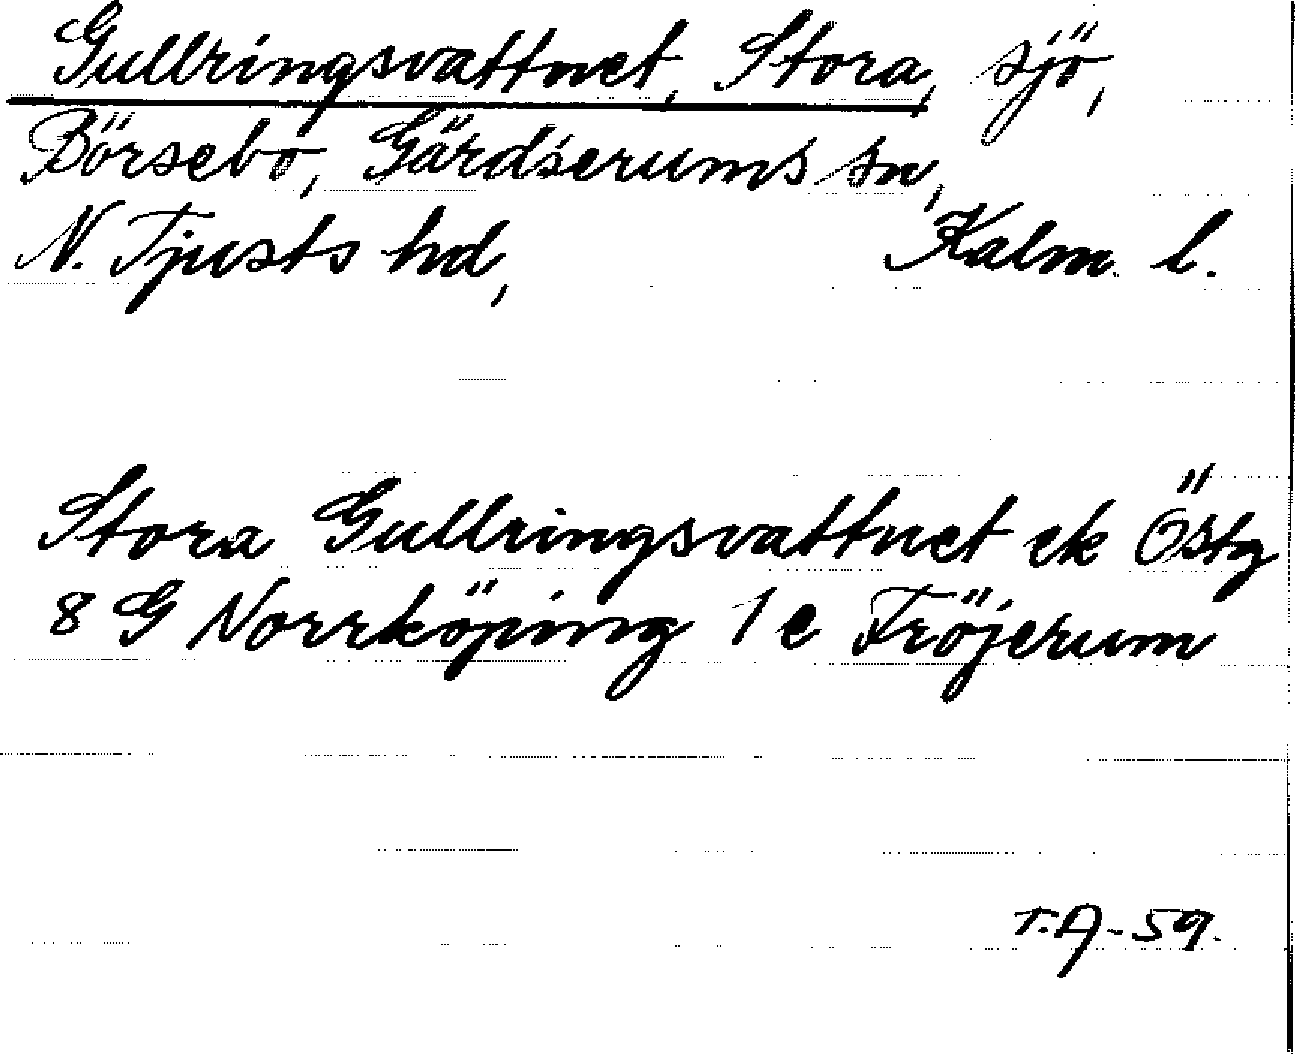 Gullringsvattnet, Stora, sjö,
Börsebo, Gärdserums sn,
N. Tjusts hd, Kalm. l.
Stora Gullringsvattnet ek Östg
8 G Norrköping 1 e Fröjerum
T.A-59.